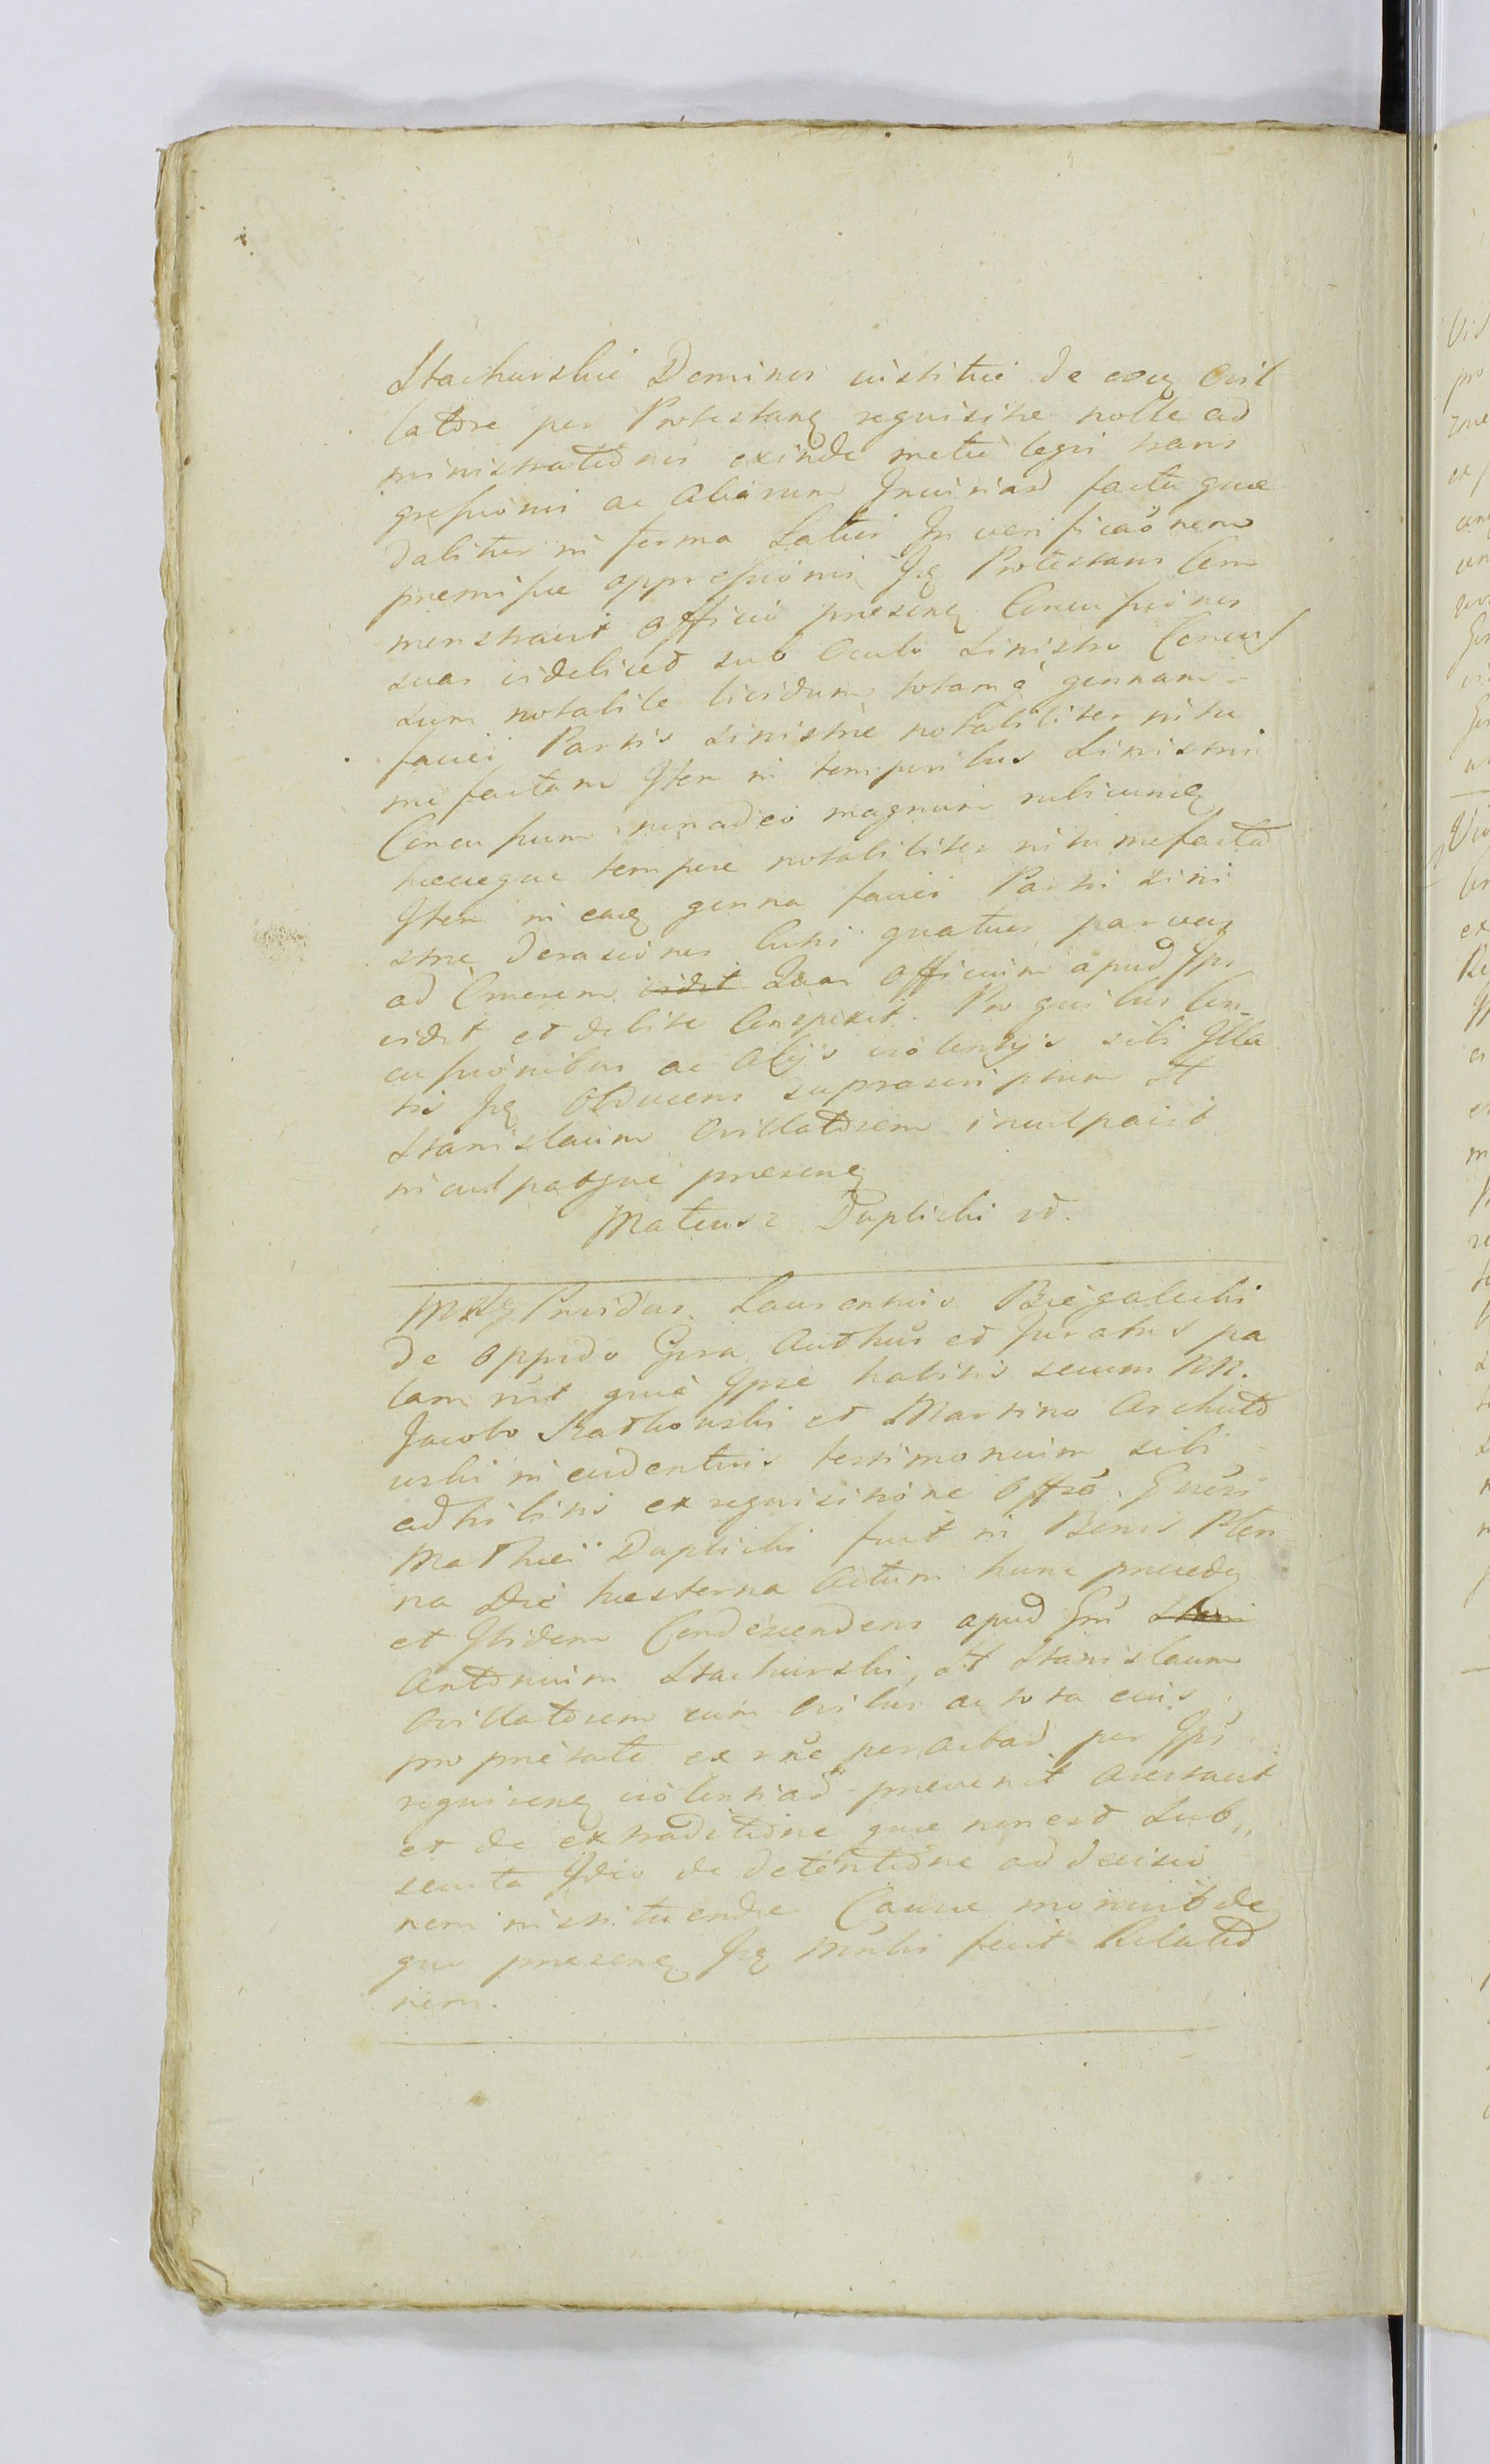 Stachurskie Dominos institui de eoq Ovil
latore per Protestanq requisitae nolle ad
ministrationis exinde metu legis trans
gressionis ac aliarum Iniuriar facta quae
dabitur in forma Latiori In verificaonem
premissae oppressionis Iq Protestans Com
monstravit Officio presenq Concussiones
suas videlicet sub Oculo Sinistro Concus
sum notabile lividum totamq gennam
faciei Partis sinistrae notabiliter intu
mefactam Item in temporibus Sinistris
Concussum non adeo magnum rubicunq
haecque tempore notabiliter intumefacta
Item in eaq genna faciei Partis sini
strae Derasiones Cutis quatuor parvas
ad Cruorem vidit Quas Officium apud Ips
vidit et debite Conspexit. Pro quibus Con-
cussionibus ac Alijs violentijs sibi Illa
tis Iq Obducens suprascriptum
Stanislaum Ovillatorem inculpavit
inculpatque presenq
Mateusz Duplicki rd.
Providus Laurentius Biegalecki
de oppido Gora Authus et Juratus pa
lam quia Ipse habitis secum NN.
Jacobo Kathowski et Martino Archuto
wski in evidentius testimonium sibi
adhibitis ex requisitione Gnsi
Mathei Duplicki fuit in Bonis Plen
na Die hesterna Actum hunc precedq
et Ibidem Condescendens apud Gn Stani
Antonium Stachurski, Stanislaum
Ovillatorem cum Ovibus ac tota eius
proprietate ex rne peractar per Ips
requirenq violentiar prevenit Arestavit
et de extraditione quae non est Sub„
secuta Ideo de detentione ad decisio
nem instituendae Causae monuit de
quo presenq Iq Minlis fecit Relatio
nem.